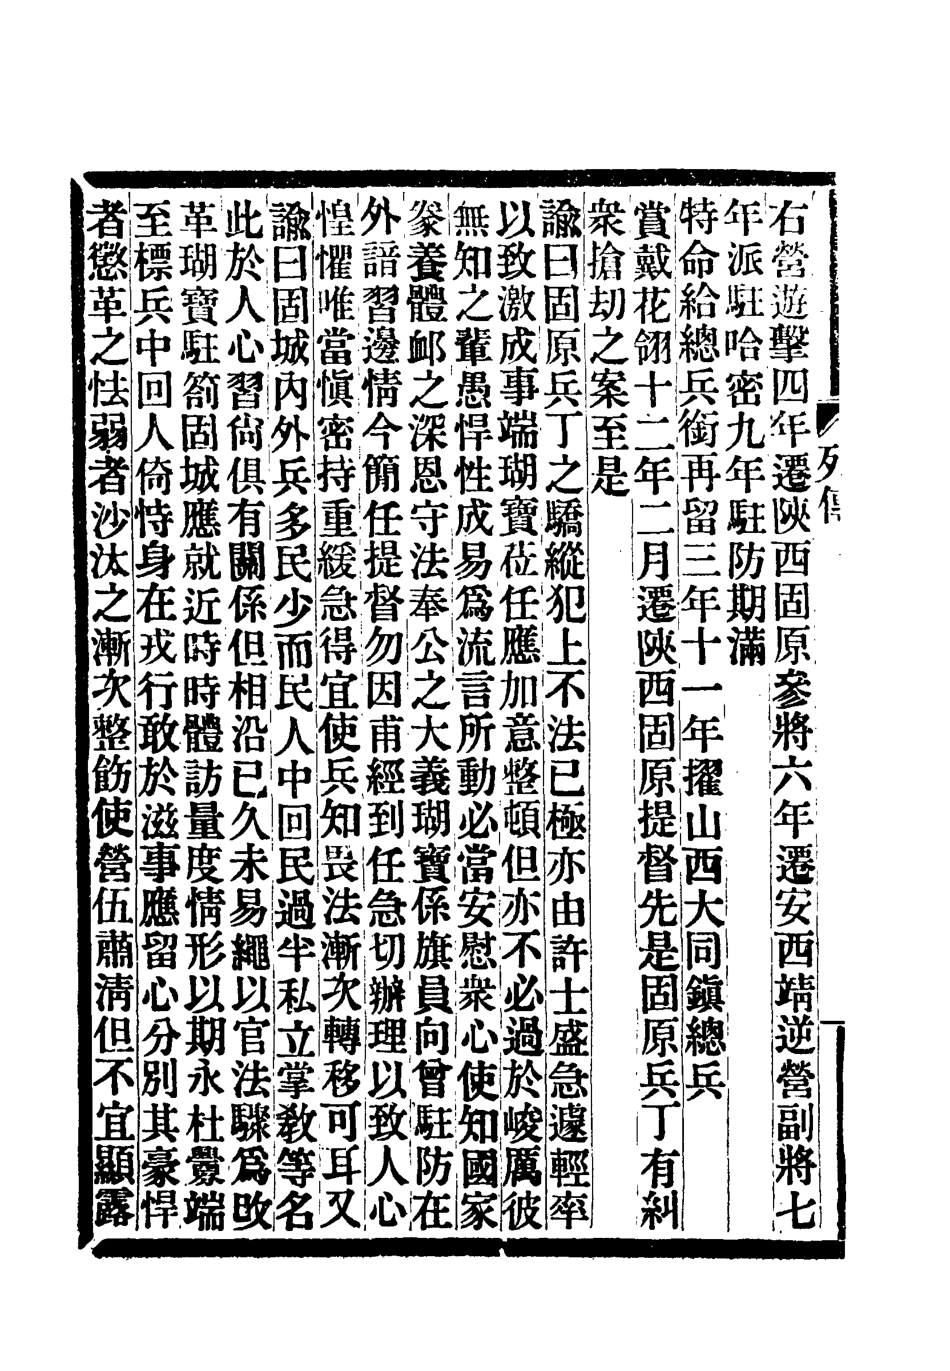 列傳
右營遊擊四年遷陝西固原參將六年遷安西靖逆營副將七
年派駐哈密九年駐防期滿
特命給總兵銜再留三年十一年擢山西大同鎭總兵
賞戴花翎十二年二月遷陝西固原提督先是固原兵丁有糾
衆搶劫之案至是
諭曰固原兵丁之驕縱犯上不法已極亦由許士盛急遽輕率
以致激成事端瑚寶莅任應加意整頓但亦不必過於峻厲彼
無知之輩愚悍性成易爲流言所動必當安慰衆心使知國家
豢養體卹之深恩守法奉公之大義瑚寶係旗員向曾駐防在
外諳習邊情今簡任提督勿因甫經到任急切辦理以致人心
惶懼唯當愼密持重緩急得宜使兵知畏法漸次轉移可耳又
諭曰固城內外兵多民少而民人中回民過半私立掌敎等名
此於人心習尙俱有關係但相沿已久未易繩以官法驟爲改
革瑚寶駐箚固城應就近時時體訪量度情形以期永杜釁端
至標兵中回人倚恃身在戎行敢於滋事應留心分別其豪悍
者懲革之怯弱者沙汰之漸次整飭使營伍肅淸但不宜顯露